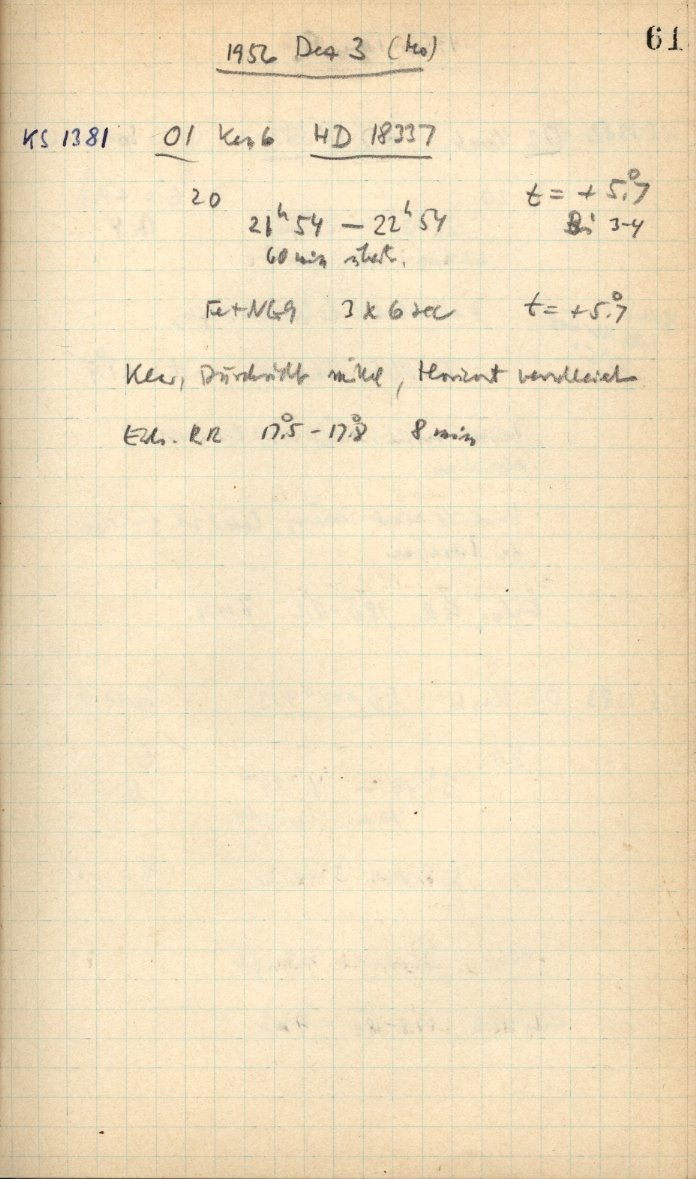 61
1956 Dez 3 (Mo)
KS 1381 01 Kas 6 HD 18337
20 t = + 5.°7
21ʰ 54 — 22ʰ 54 Bi 3-4
60 min
Fe+NG9 3 x 6 sec t = +5.°7
Klar, Durchsicht mittel, Horizont verschleiert
Ech. RR 17.°5 - 17.°8 8 min